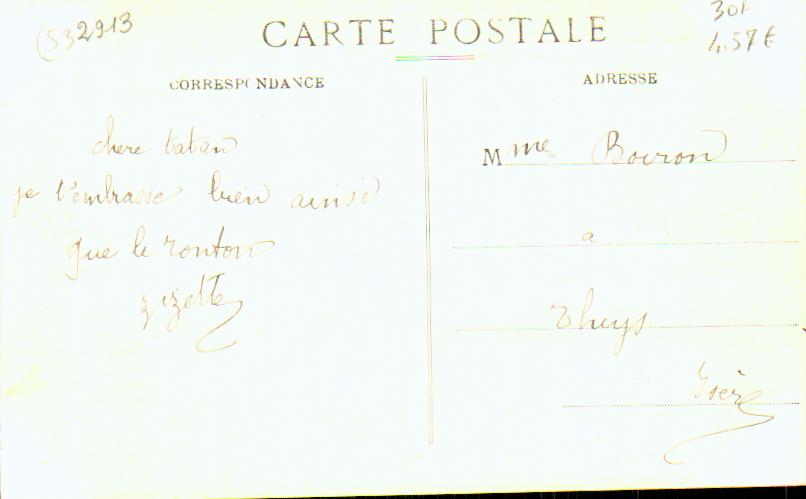 (S32913
30F
4.57€
CARTE POSTALE
CORRESPONDANCE
chere tatan
je t'embrasse bien ainsi
que le tonton
zizette
ADRESSE
Mme Boiron
a
Theys
Isère